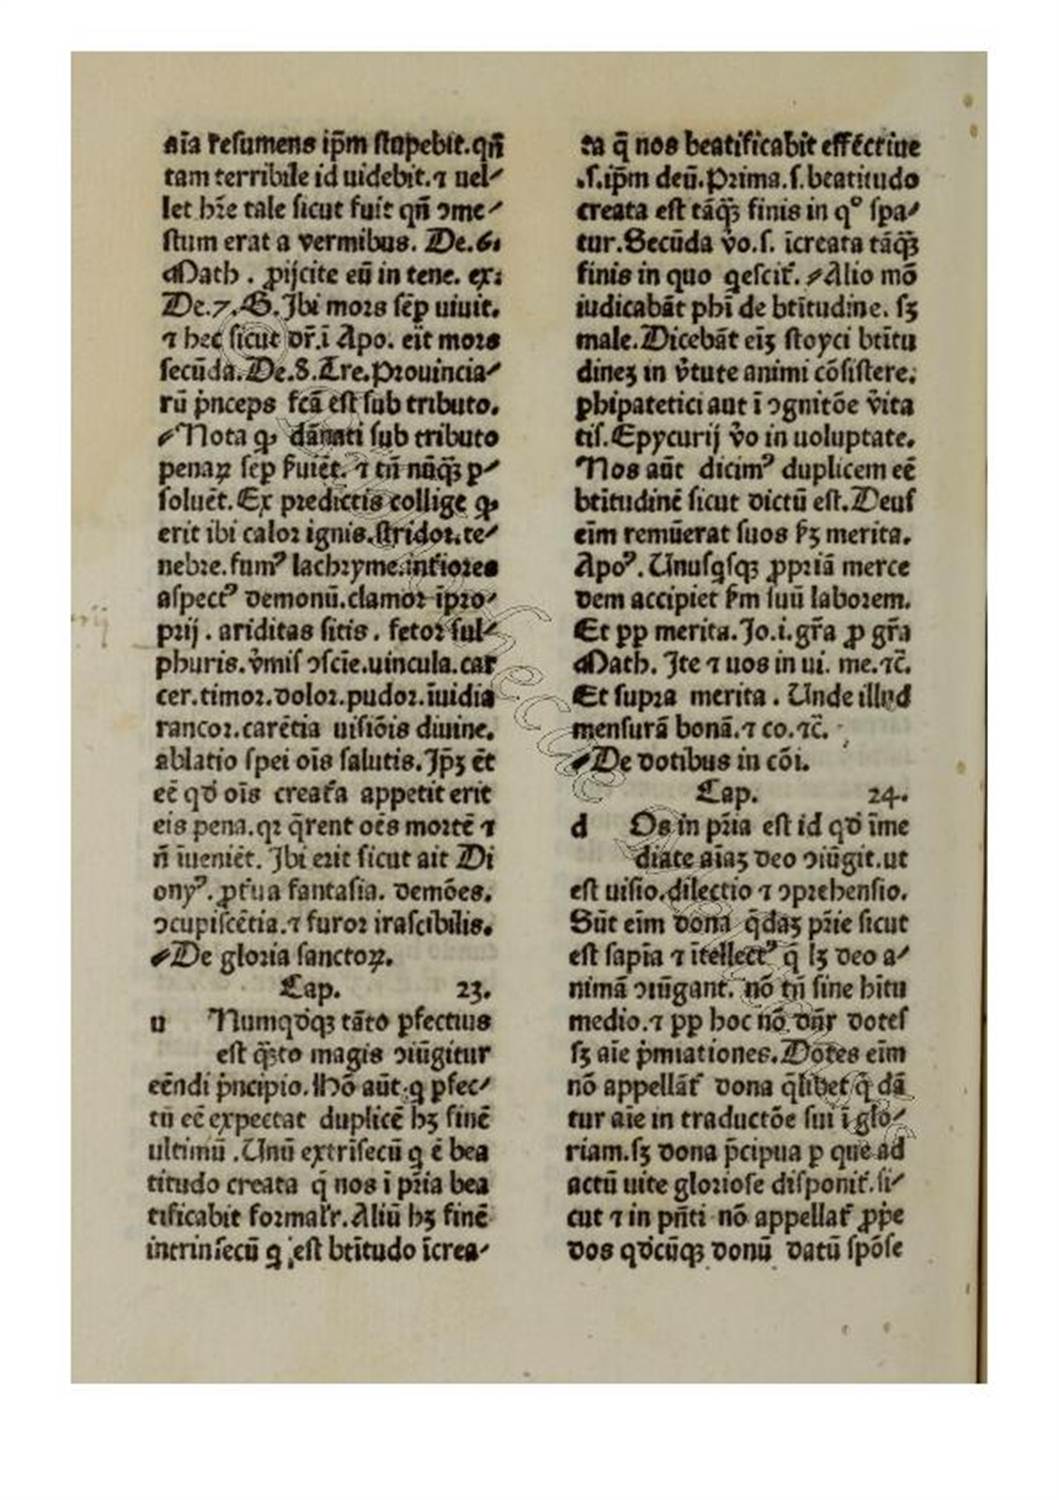 aīa resumens ip̄m stupebit.qn̄
tam terribile id uidebit.⁊ uel⸗
let hr̄e tale sicut fuit qn̄ ɔme⸗
stum erat a vermibus. De.6.
Math . ꝓijcite eū in tene. ex:
De.7.G.Ibi mors sēp uiuit.
⁊ hec sicut dr̄.ī Apo. eīt mors
secūda.De.8.Tre.Prouincia⸗
rū p̄nceps fcā est sub tributo.
Nota ꝙ dānati sub tributo
penaꝝ sep ẜuiēt. ⁊ tn̄ nūq̄ꝫ p⸗
soluēt.Ex predictis collige ꝙ
erit ibi calor ignis.stridor.te⸗
nebre.fumꝰ lachryme.inẜiores
aspectꝰ demonū.clamor īpro⸗
prij . ariditas sitis . fetor sul⸗
phuris.v̄mis ɔscīe.uincula.car
cer.timor.dolor.pudor.īuidia
rancor.carētia uisiōis diuine.
ablatio spei oīs salutis.Ip̄ꝫ ēt
eē̄ qd̄ oīs creat̄a appetit erit
eis pena.qꝛ q̄rent oēs mortē ⁊
n̄ īueniēt. Ibi erit sicut ait Di
onyꝰ. ꝓt̄ua fantasia. demōes.
ɔcupiscētia.⁊ furor irascibilis.
De gloria sanctoꝝ.
Cap. 23.
u Numqd̄qꝫ tāto pfectius
est q̄ꝫto magis ɔiūgitur
eēndi p̄ncipio. Hō aūt.q pfec⸗
tū eē expectat duplicē hꝫ finē
ultimū .Unū extrīsecū q ē bea
titudo creata q̄ nos ī pr̄ia bea
tificabit formalr̄. Aliū hꝫ finē
intrinsecū q est btītudo īcrea⸗
ta q̄ nos beatificabit effectiue
.s.ip̄m deū.Prima.s.beatitudo
creata est tāq̄ꝫ finis in qͦ spa⸗
tur.Secūda v̄o.s. īcreata tāq̄ꝫ
finis in quo qescit̄. Alio mō
iudicabāt phī de btītudine. sꝫ
male.Dicebāt eīꝫ stoyci btītu
dineꝫ in v̄tute animi cōsistere.
phipatetici aut ī ɔgnitōe v̄ita
tis.Epycurij v̄o in uoluptate.
Nos aūt dicimꝰ duplicem eē
btītudinē sicut dictū est.Deus
eīm remūerat suos ẜꝫ merita.
Apoꝰ. Unusqsqꝫ ꝓpriā merce
dem accipiet ẜm suū laborem.
Et pp merita.Jo.i.gr̄a ꝓ gr̄a
Math. Ite ⁊ uos in ui. me.⁊c̄.
Et supra merita . Unde illud
mensurā bonā.⁊ co.⁊c̄.
De dotibus in cōi.
Cap. 24.
d Os in pr̄ia est id qd̄ īme
diate aīaꝫ deo ɔiūgit.ut
est uisio.dilectio ⁊ ɔprehensio.
Sūt eīm dona q̄daꝫ pr̄ie sicut
est sapīa ⁊ ītellectꝰ q̄ lꝫ deo a⸗
nimā ɔiūgant. nō tn̄ sine hītu
medio.⁊ pp hoc nō dn̄r dotes
sꝫ aīe p̄miationes.Dotes eīm
nō appellāt̄ dona q̄libet q̄ dā
tur aīe in traductōe sui ī glo⸗
riam.sꝫ dona p̄cipua p que ad
actū uite gloriose disponit̄.si⸗
cut ⁊ in pn̄ti nō appellat̄ ꝓp̄e
dos qd̄cūqꝫ donū datū spōse